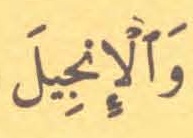 وَٱلْإِنجِيلَ